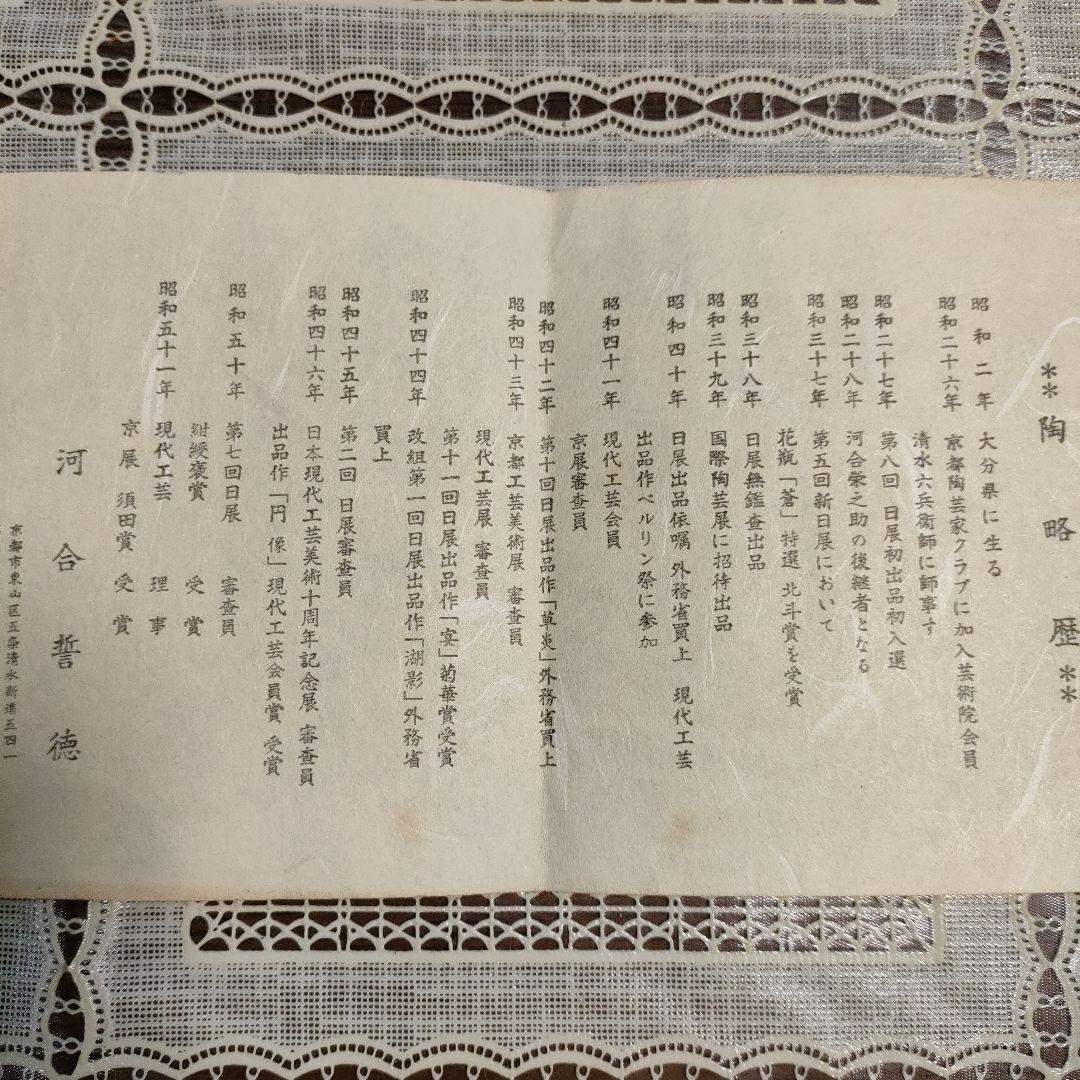 **陶略歴**
昭和二年 大分県に生る
昭和二十六年 京都陶芸家クラブに加入芸術院会員
清水六兵衛師に師事す
昭和二十七年 第八回 日展初出品初入選
昭和二十八年 河合栄之助の後継者となる
昭和三十七年 第五回新日展において
花瓶「蒼」特選 北斗賞を受賞
昭和三十八年 日展無鑑査出品
昭和三十九年 国際陶芸展に招待出品
昭和四十年 日展出品依嘱 外務省買上 現代工芸
出品作ベルリン祭に参加
昭和四十一年 現代工芸会員
京展審査員
昭和四十二年 第十回日展出品作「草炎」外務省買上
昭和四十三年 京都工芸美術展 審査員
現代工芸展 審査員
第十一回日展出品作「宴」菊華賞受賞
昭和四十四年 改組第一回日展出品作「湖影」外務省
買上
昭和四十五年 第二回 日展審査員
昭和四十六年 日本現代工芸美術十周年記念展 審査員
出品作「円像」現代工芸会員賞 受賞
昭和五十年 第七回日展 審査員
紺綬褒賞 受賞
昭和五十一年 現代工芸 理事
京展 須田賞 受賞
河合誓徳
京都市東山区五条清水新道五四一